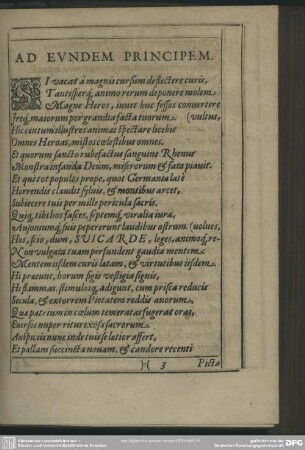 AD EVNDEM PRINCIPEM.
SI vacat á magnis cursum deflectere curis,
Tantisperq́, animo rerum deponere molem,
Magne Heros, iuvet huc fessos convertere
Ireq́, maiorum per grandia facta tuorum. (vultus,
Hic centum illustres animas spectare licebit
Omnes Heroas, mistos cælestibus omnes.
Et quorum sancto rubefactus sanguine Rhenus
Monstra infanda Deûm, miserorum & fata piavit.
Et quot tot populos prope, quot Germania latè
Horrendis claudit sylvis, & montibus arcet,
Subiecere tuis per mille pericula sacris.
Quiq́, tibi hos fasces, septemq́, viralia iura,
Ausoniumq́, suis pepererunt laudibus ostrum. (volues,
Hos, scio, dum, SVICARDE, leges, animoq́, re-
Non vulgata tuam perfundent gaudia mentem,
Mentem iisdem curis latam, & virtutibus iisdem.
Hi præeunt, horum figis vestigia signis,
Hi flammas, stimulosq́, adigunt, cum prisca reducis
Secula, & extorrem Pietatem reddis avorum,
Qua patrium in cælum temeratas fugerat oras,
Eversos nuper ritus exosa sacrorum.
Auspiciis nunc inde tuis se latior affert,
Et pallam succincta novam, & candore recenti
):( 3 Picta